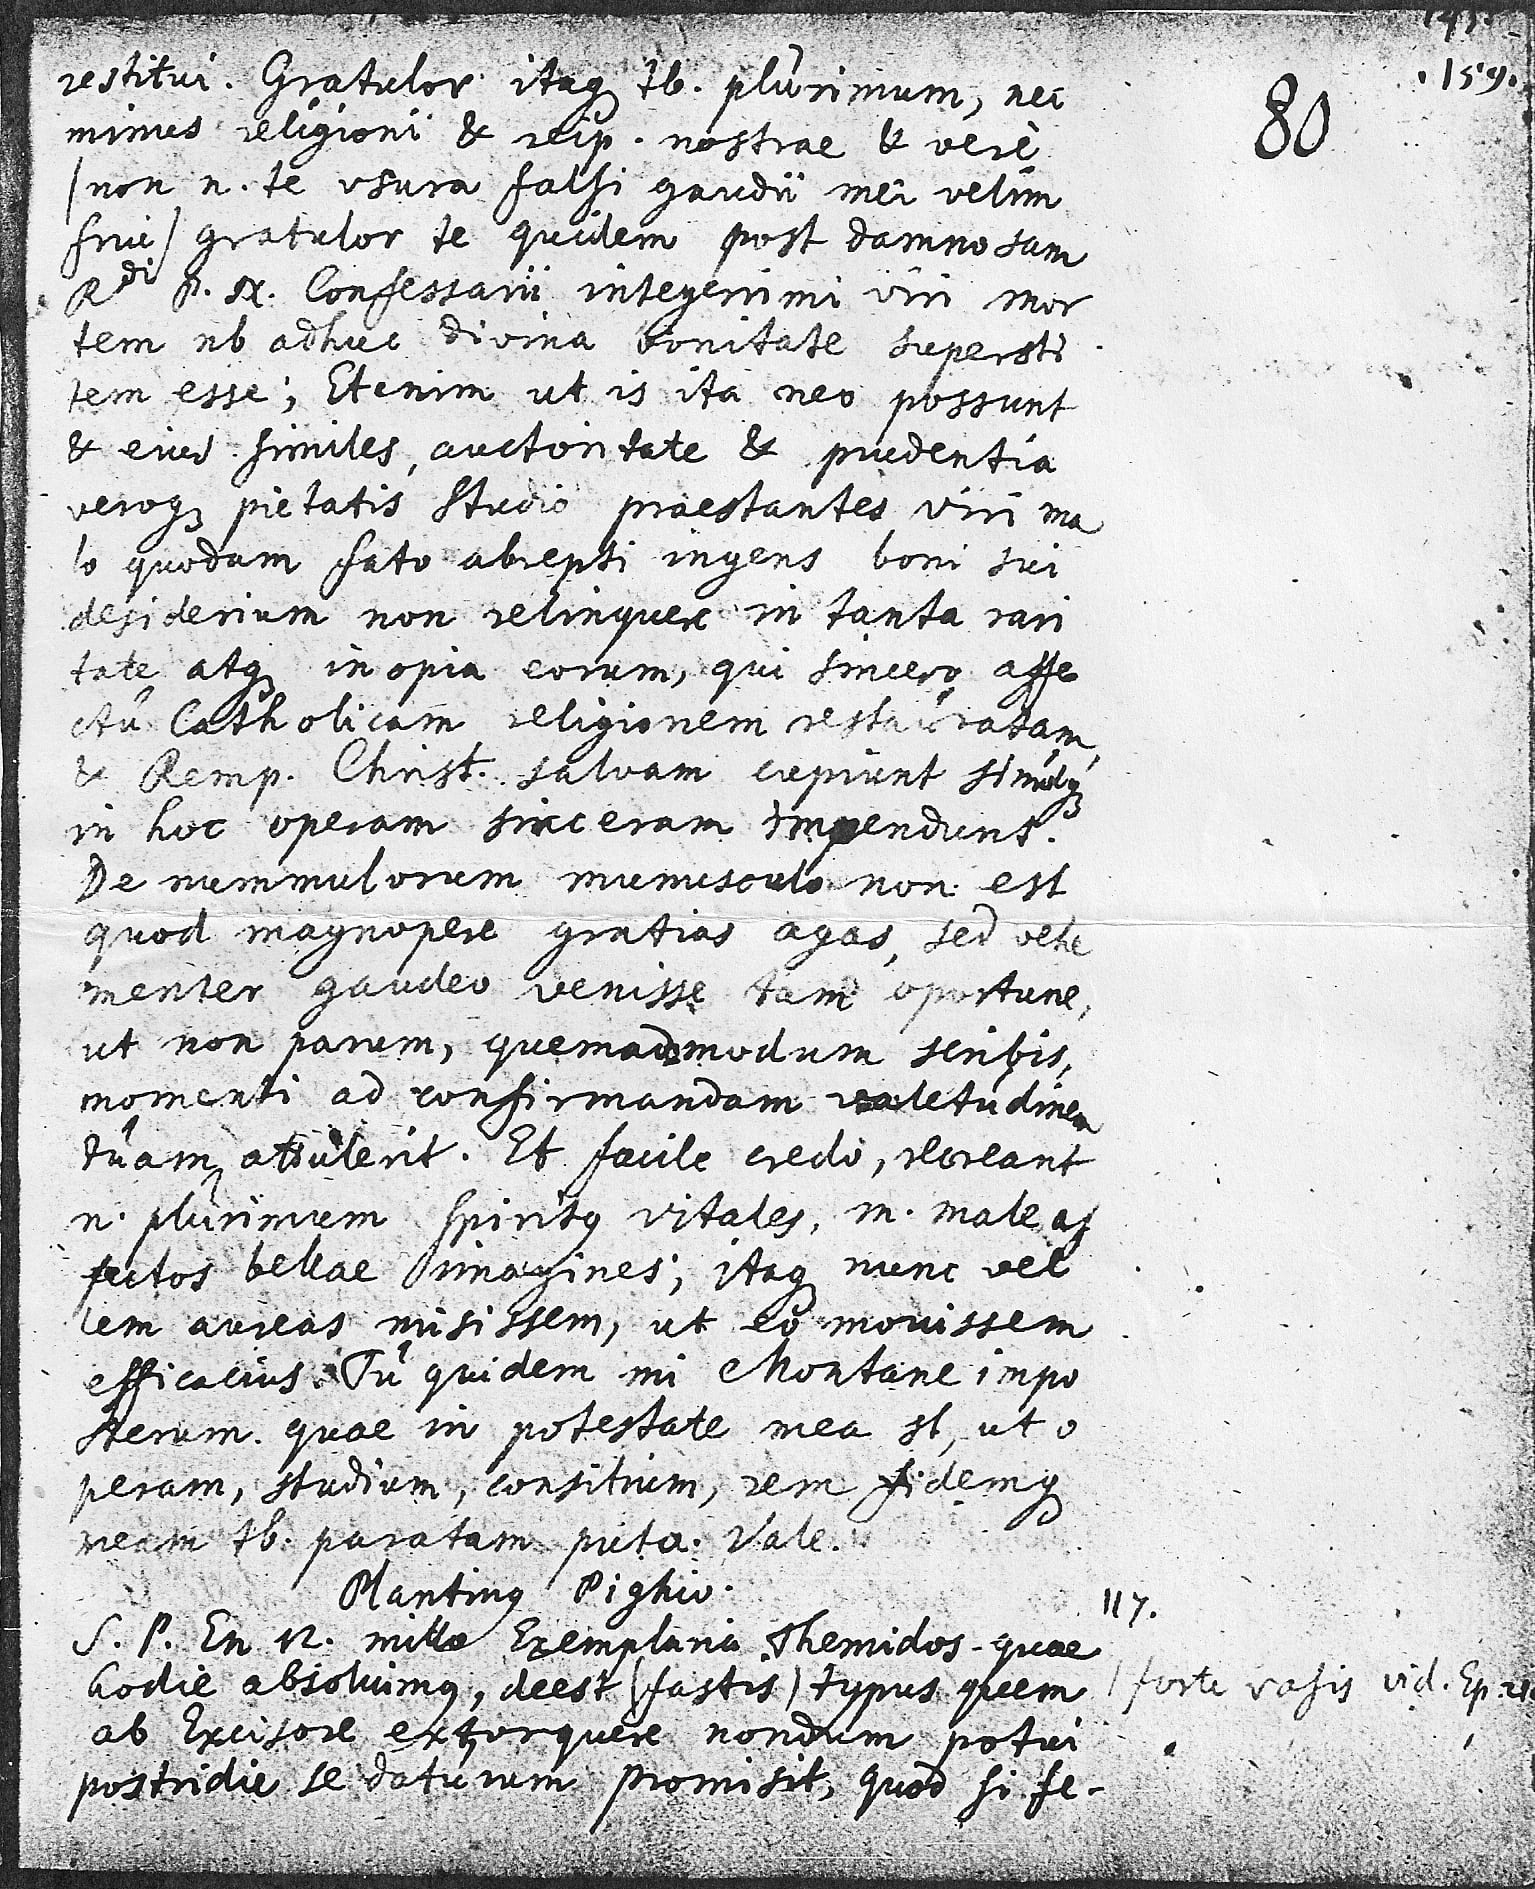 .159.
80
restitui. Gratulor itaq tb. plurimum, nec
minus religioni & reip. nostrae & verè
(non n. te vsura falsi gaudii mei velim
frui) gratulor te quidem post damnosam
Rdi p. Confessarii integerrimi viri mor
tem nb adhuc divina bonitate supersti
tem esse; Etenim ut is ita neo possunt
& eius similes, auctoritate & prudentia
veroq pietatis studio praestantes viri ma
lo quodam fato abrepti ingens boni sui
desiderium non relinquere in tanta rari
tate atq inopia eorum, qui sincero affe
ctu Catholicam religionem restauratam
& Remp. Christ. salvam cupiunt simulq
in hoc operam sinceram impendunt.
De nummulorum munusculo non est
quod magnopere gratias agas, sed vehe
menter gaudeo venisse tam oportune,
ut non parum, quemadmodum scribis,
momenti ad confirmandam valetudinem
tuam attulerit. Et facile credo, recreant
n. plurimum spiritq vitales, m. male af
fectos bellae imagines; itaq nunc vel
lem aureas misissem, ut eo movissem
efficacius. Tu quidem mi Montane impo
sterum quae in potestate mea st, ut o
peram, studium, consilium, rem fidemq
meam tb. paratam puta. Vale.
Plantinq Pighio.
117.
S. P. En 12. mitto Exemplaria Themidos quae
hodie absoluimq, deest (fastis) typus quem
/ forte vasis vid. Ep.
ab Excisore extorquere nondum potui
postridie se daturum promisit, quod si fe-